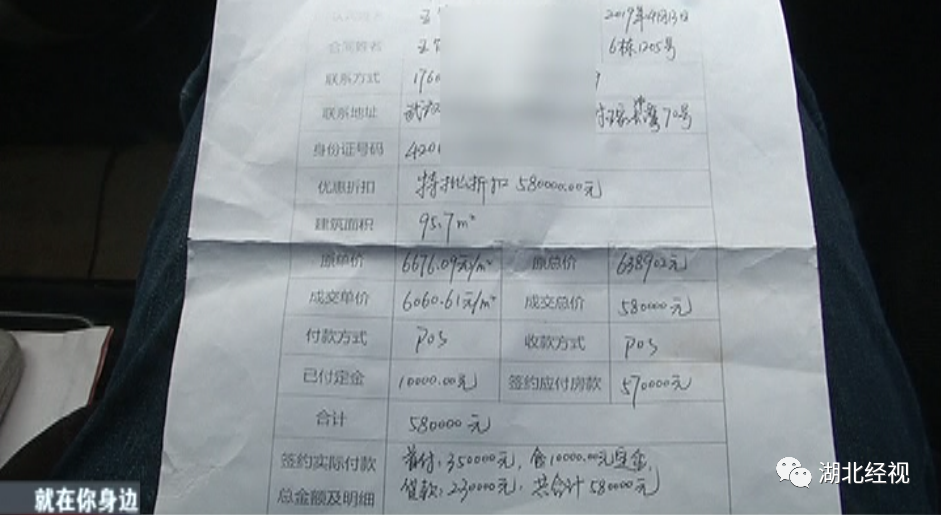 2019年4月13日
合同姓名 王 6栋1205号
联系方式 1760 9
联系地址 武汉 70号
身份证号码 4201
优惠折扣 特批折扣 580000.00元
建筑面积 95.7m²
原单价 6676.09元/m² 原总价 638902元
成交单价 6060.61元/m² 成交总价 580000元
付款方式 pos 收款方式 pos
已付定金 10000.00元 签约应付房款 570000元
合计 580000元
签约实际付款 首付:350000元,含10000.00元定金,
总金额及明细 贷款:230000元,共合计580000元
就在你身边
湖北经视